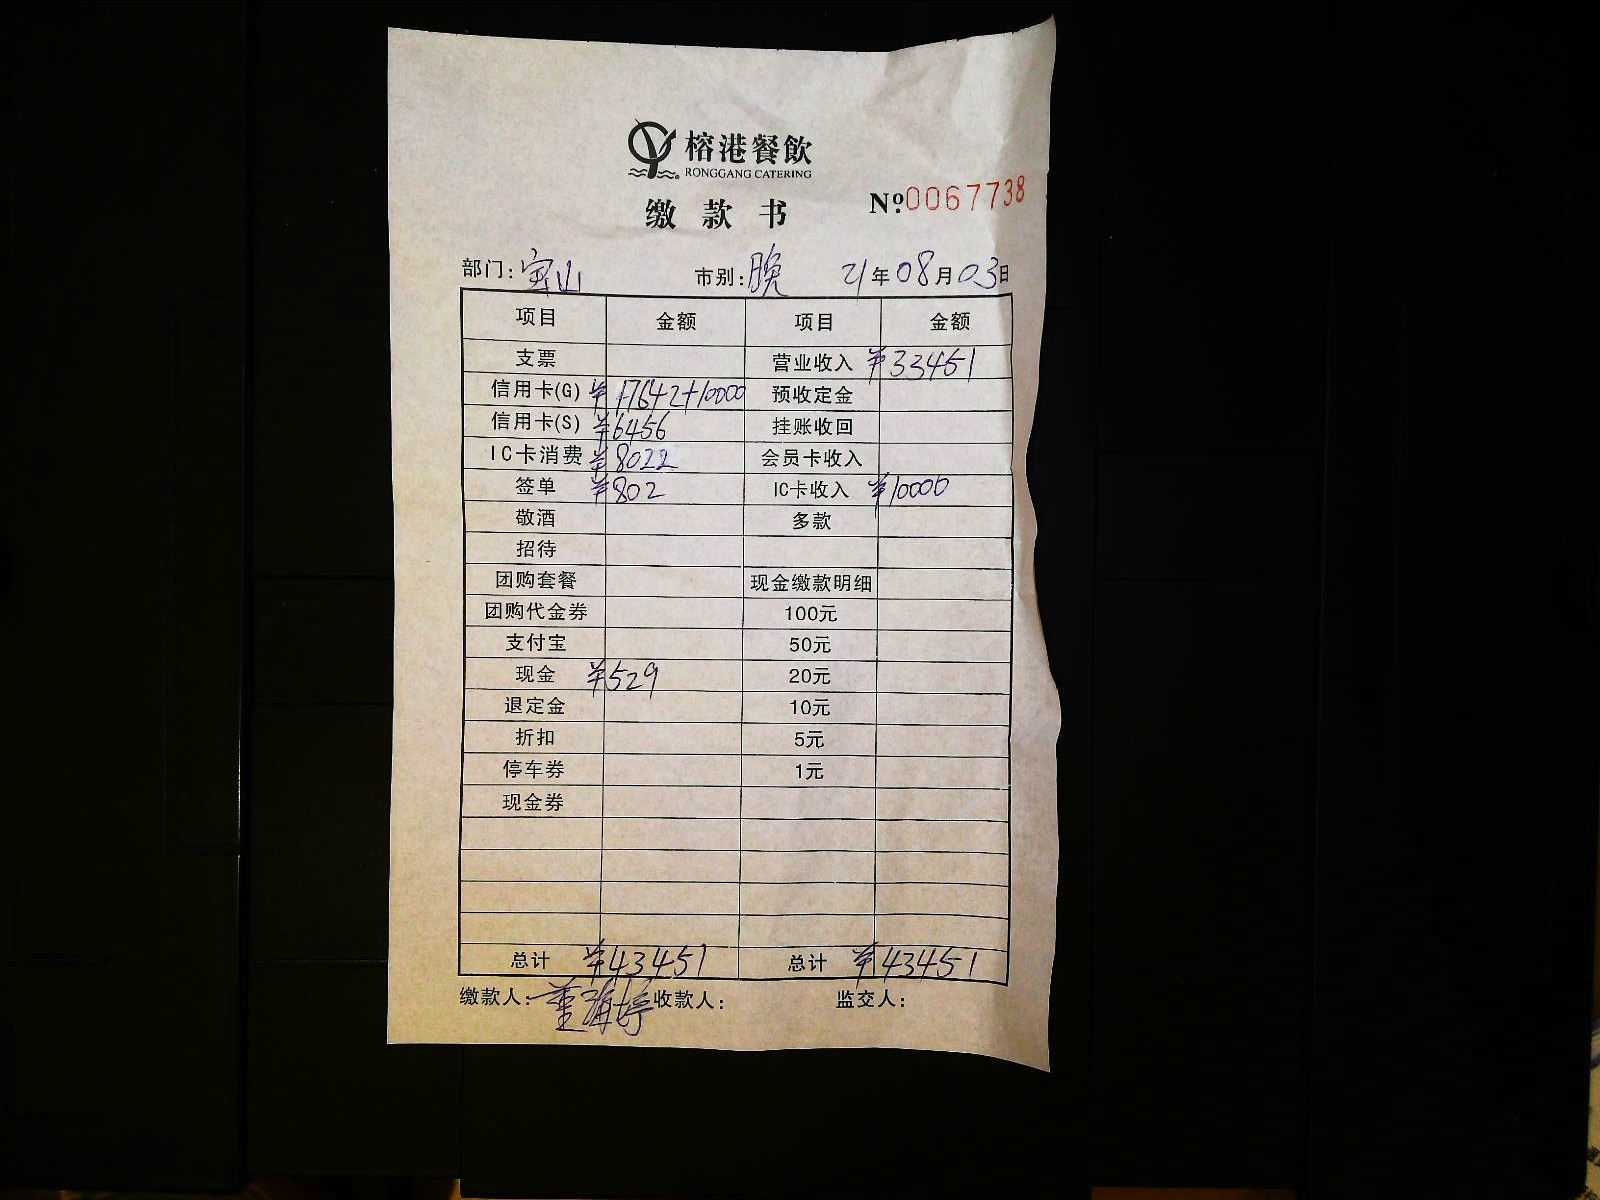 榕港餐飲
RONGGANG CATERING
缴款书
Nº:0067738
部门:宝山 市别:晚 21年08月03日
项目 金额 项目 金额
支票 营业收入 ¥33451
信用卡(G) ¥17642+10000 预收定金
信用卡(S) ¥6456 挂账收回
IC卡消费 ¥8022 会员卡收入
签单 ¥802 IC卡收入 ¥10000
敬酒 多款
招待
团购套餐 现金缴款明细
团购代金券 100元
支付宝 50元
现金 ¥529 20元
退定金 10元
折扣 5元
停车券 1元
现金券
总计 ¥43451 总计 ¥43451
缴款人: 收款人: 监交人: